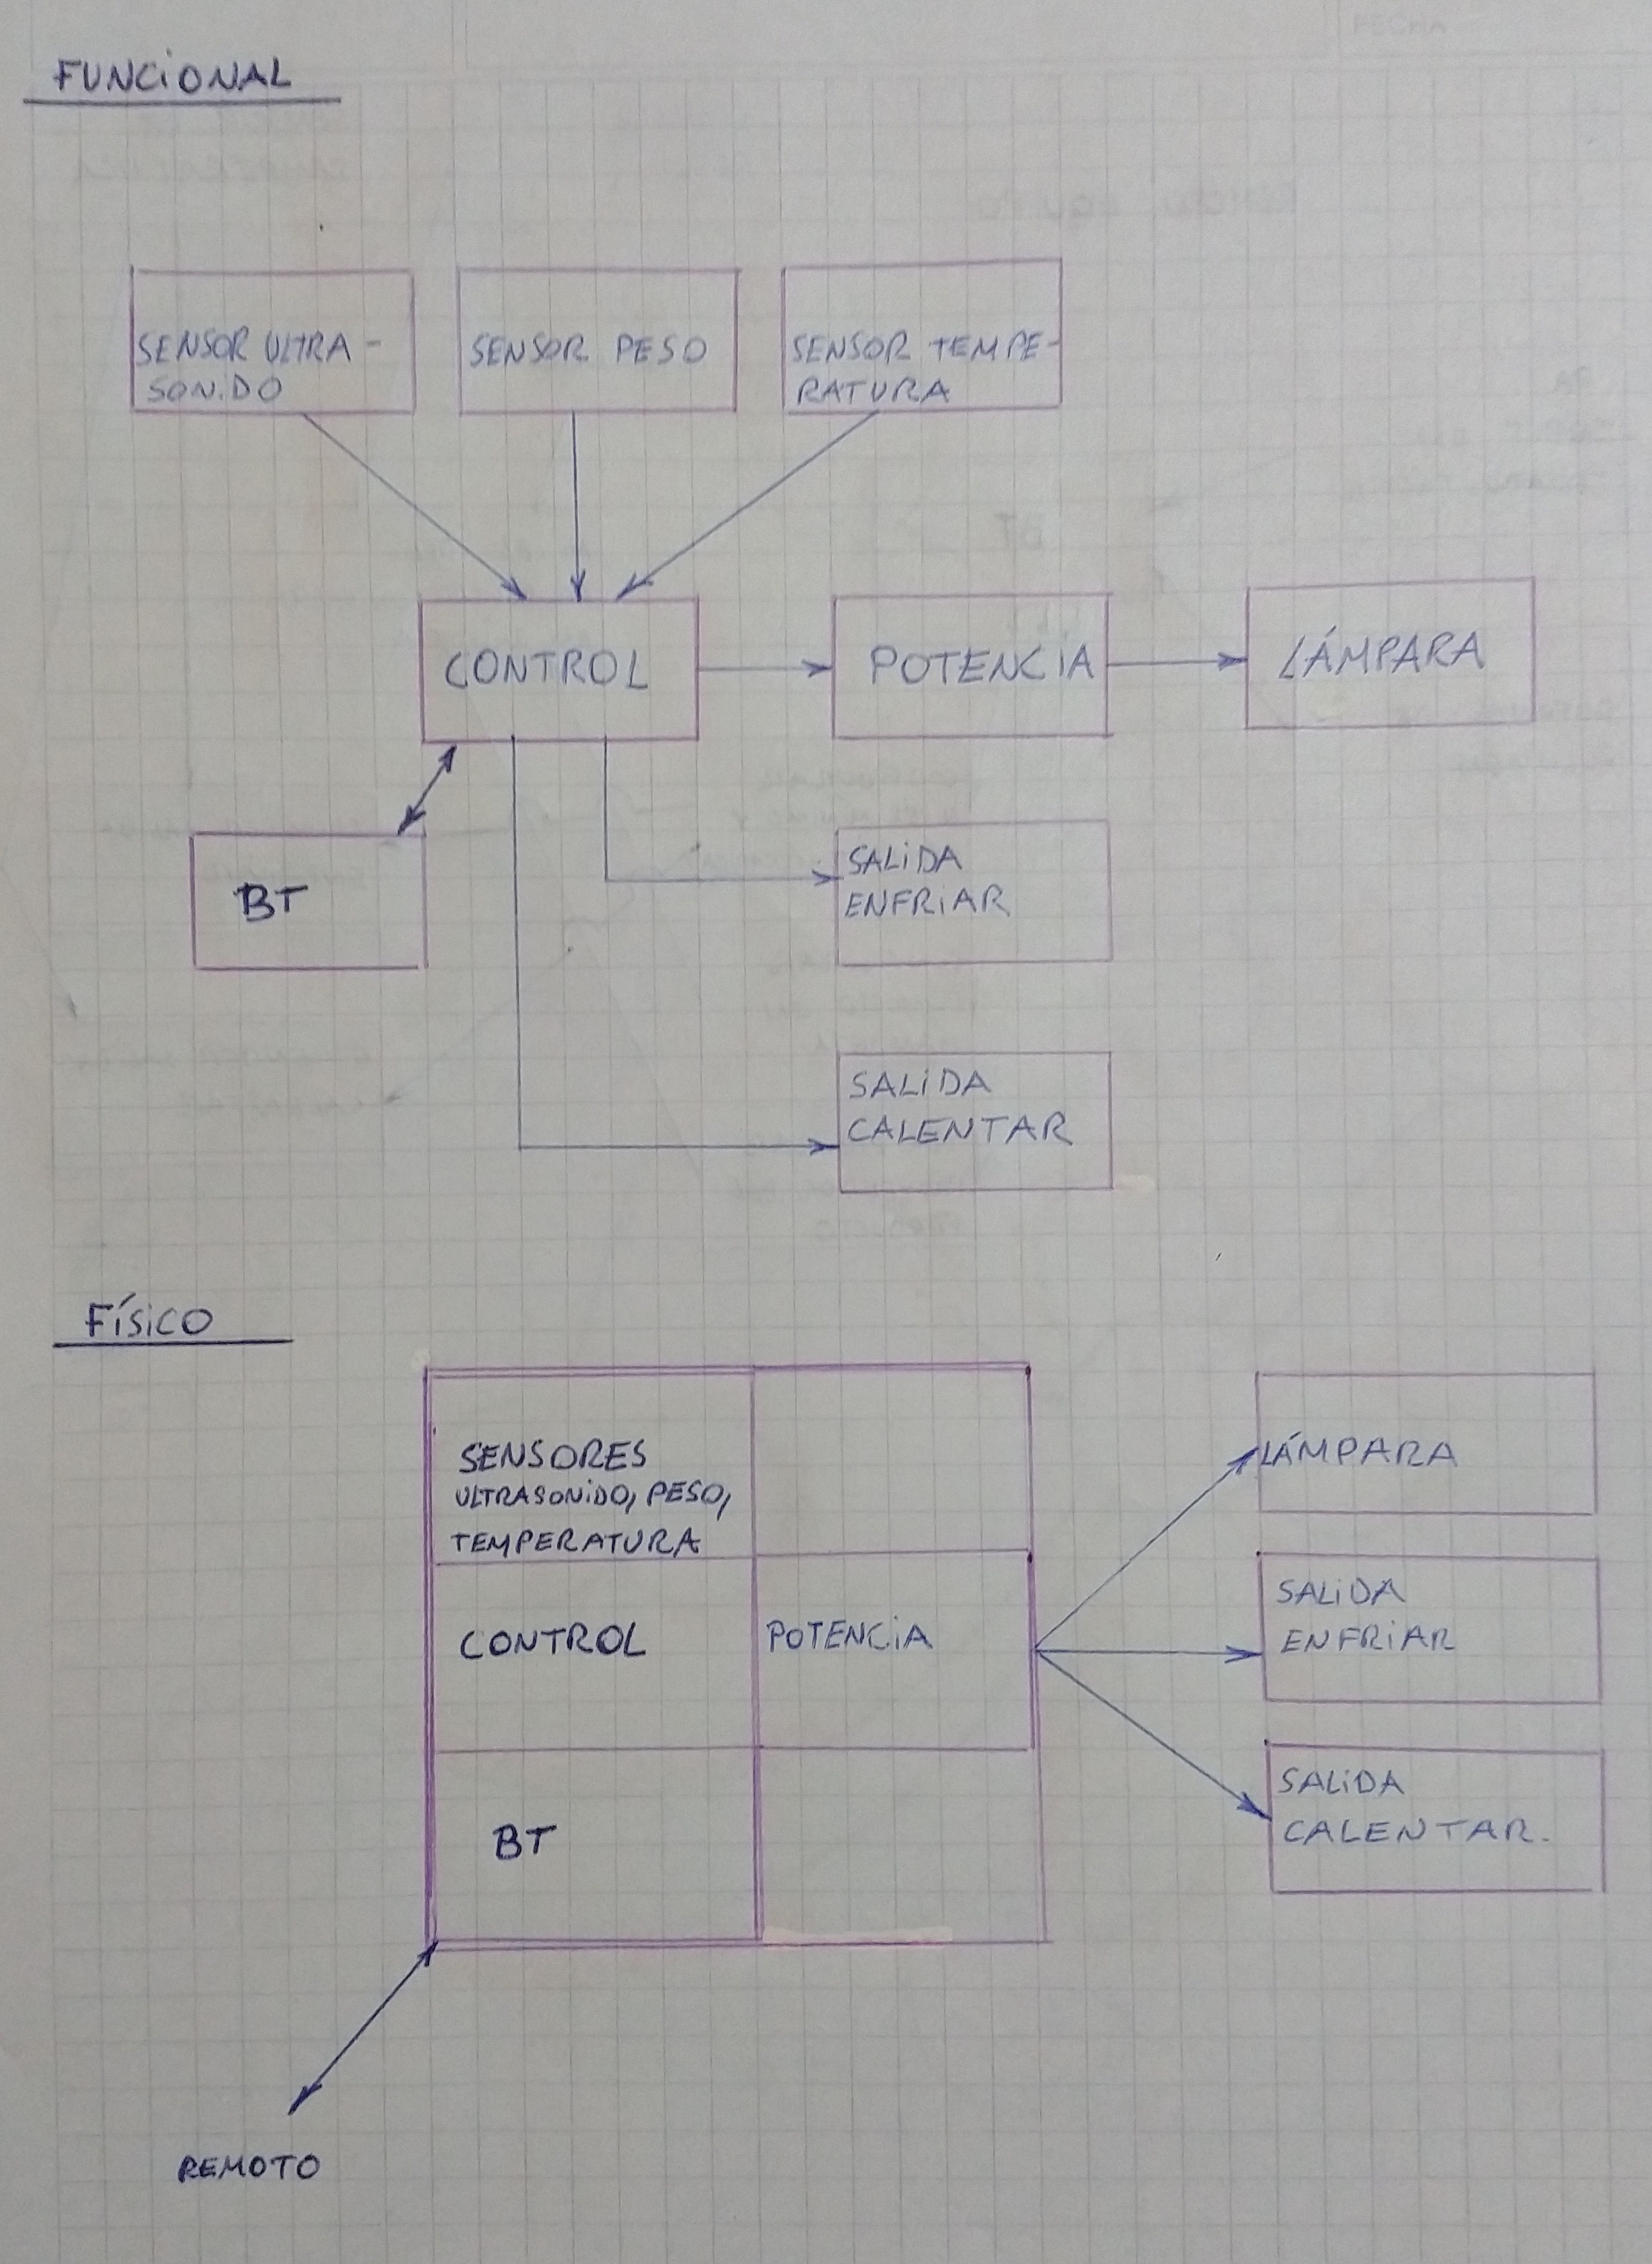 FUNCIONAL
SENSOR ULTRA-
SONIDO
SENSOR PESO
SENSOR TEMPE-
RATURA
CONTROL
POTENCIA
LÁMPARA
BT
SALIDA
ENFRIAR
SALIDA
CALENTAR
FÍSICO
SENSORES
ULTRASONIDO, PESO,
TEMPERATURA
CONTROL
POTENCIA
BT
LÁMPARA
SALIDA
ENFRIAR
SALIDA
CALENTAR.
REMOTO